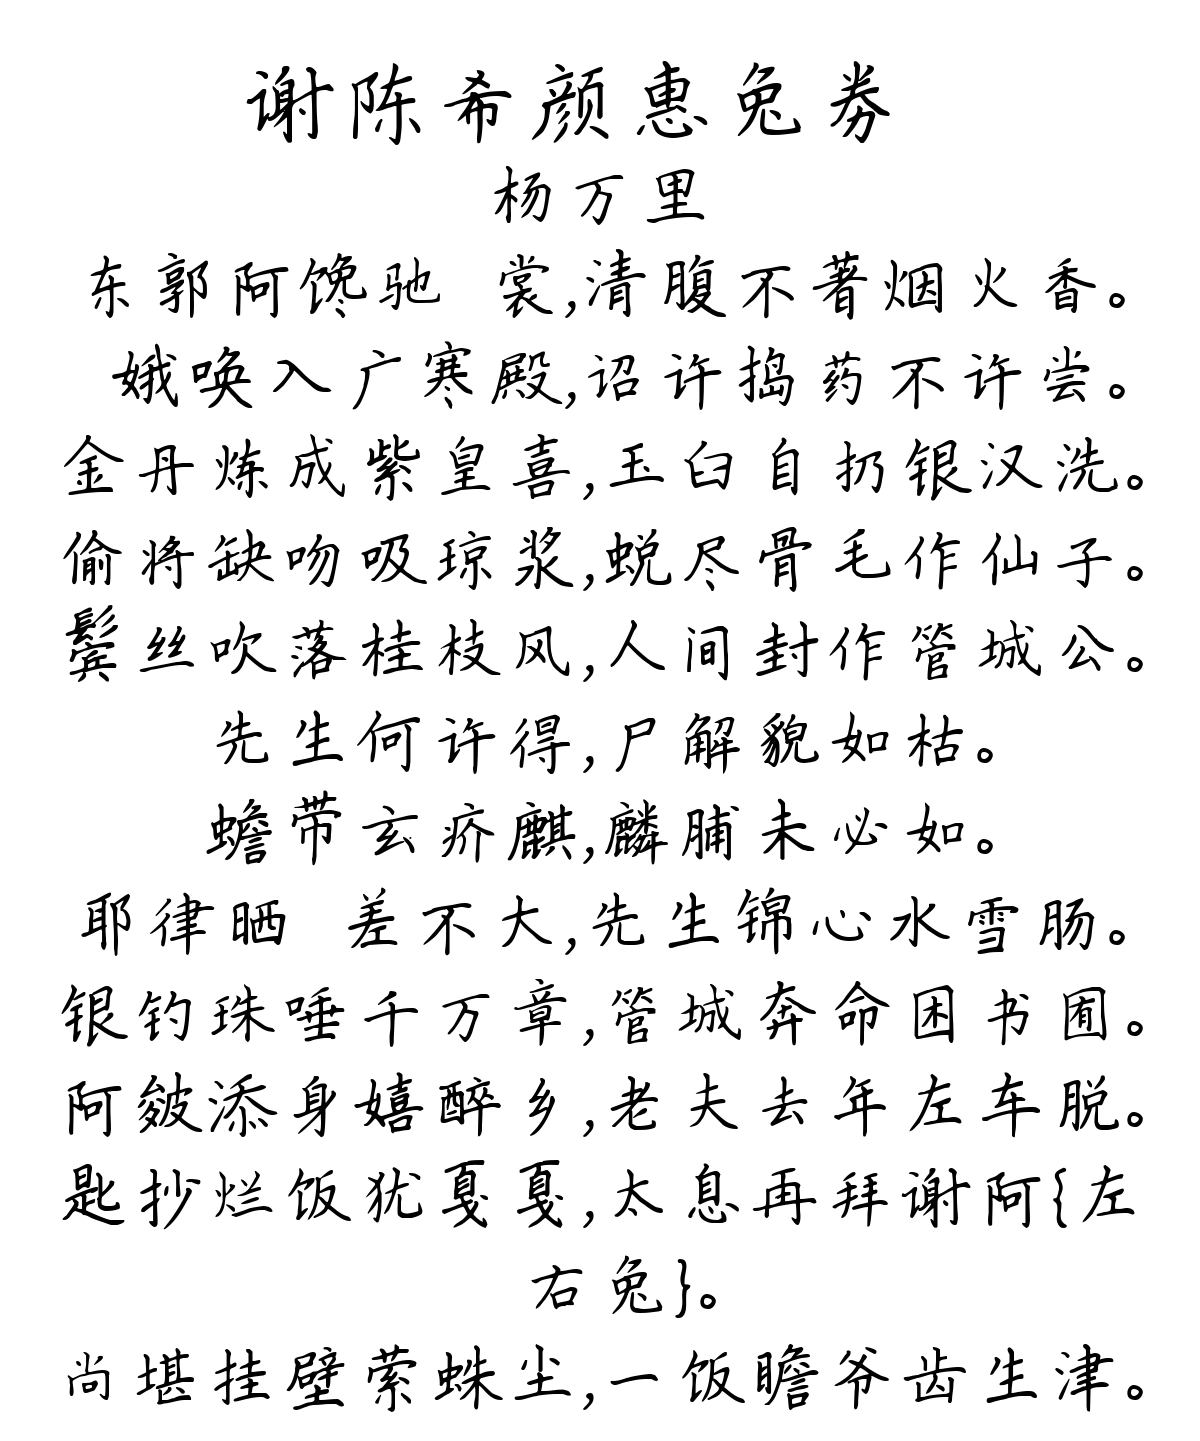 谢陈希颜惠兔劵
杨万里
东郭阿馋驰 裳,清腹不著烟火香。
娥唤入广寒殿,诏许捣药不许尝。
金丹炼成紫皇喜,玉臼自扔银汉洗。
偷将缺吻吸琼浆,蜕尽骨毛作仙子。
鬓丝吹落桂枝风,人间封作管城公。
先生何许得,尸解貌如枯。
蟾带玄疥麒,麟脯未必如。
耶律晒 差不大,先生锦心水雪肠。
银钓珠唾千万章,管城奔命困书囿。
阿皴添身嬉醉乡,老夫去年左车脱。
匙抄烂饭犹戛戛,太息再拜谢阿{左
右兔}。
尚堪挂壁萦蛛尘,一饭瞻爷齿生津。